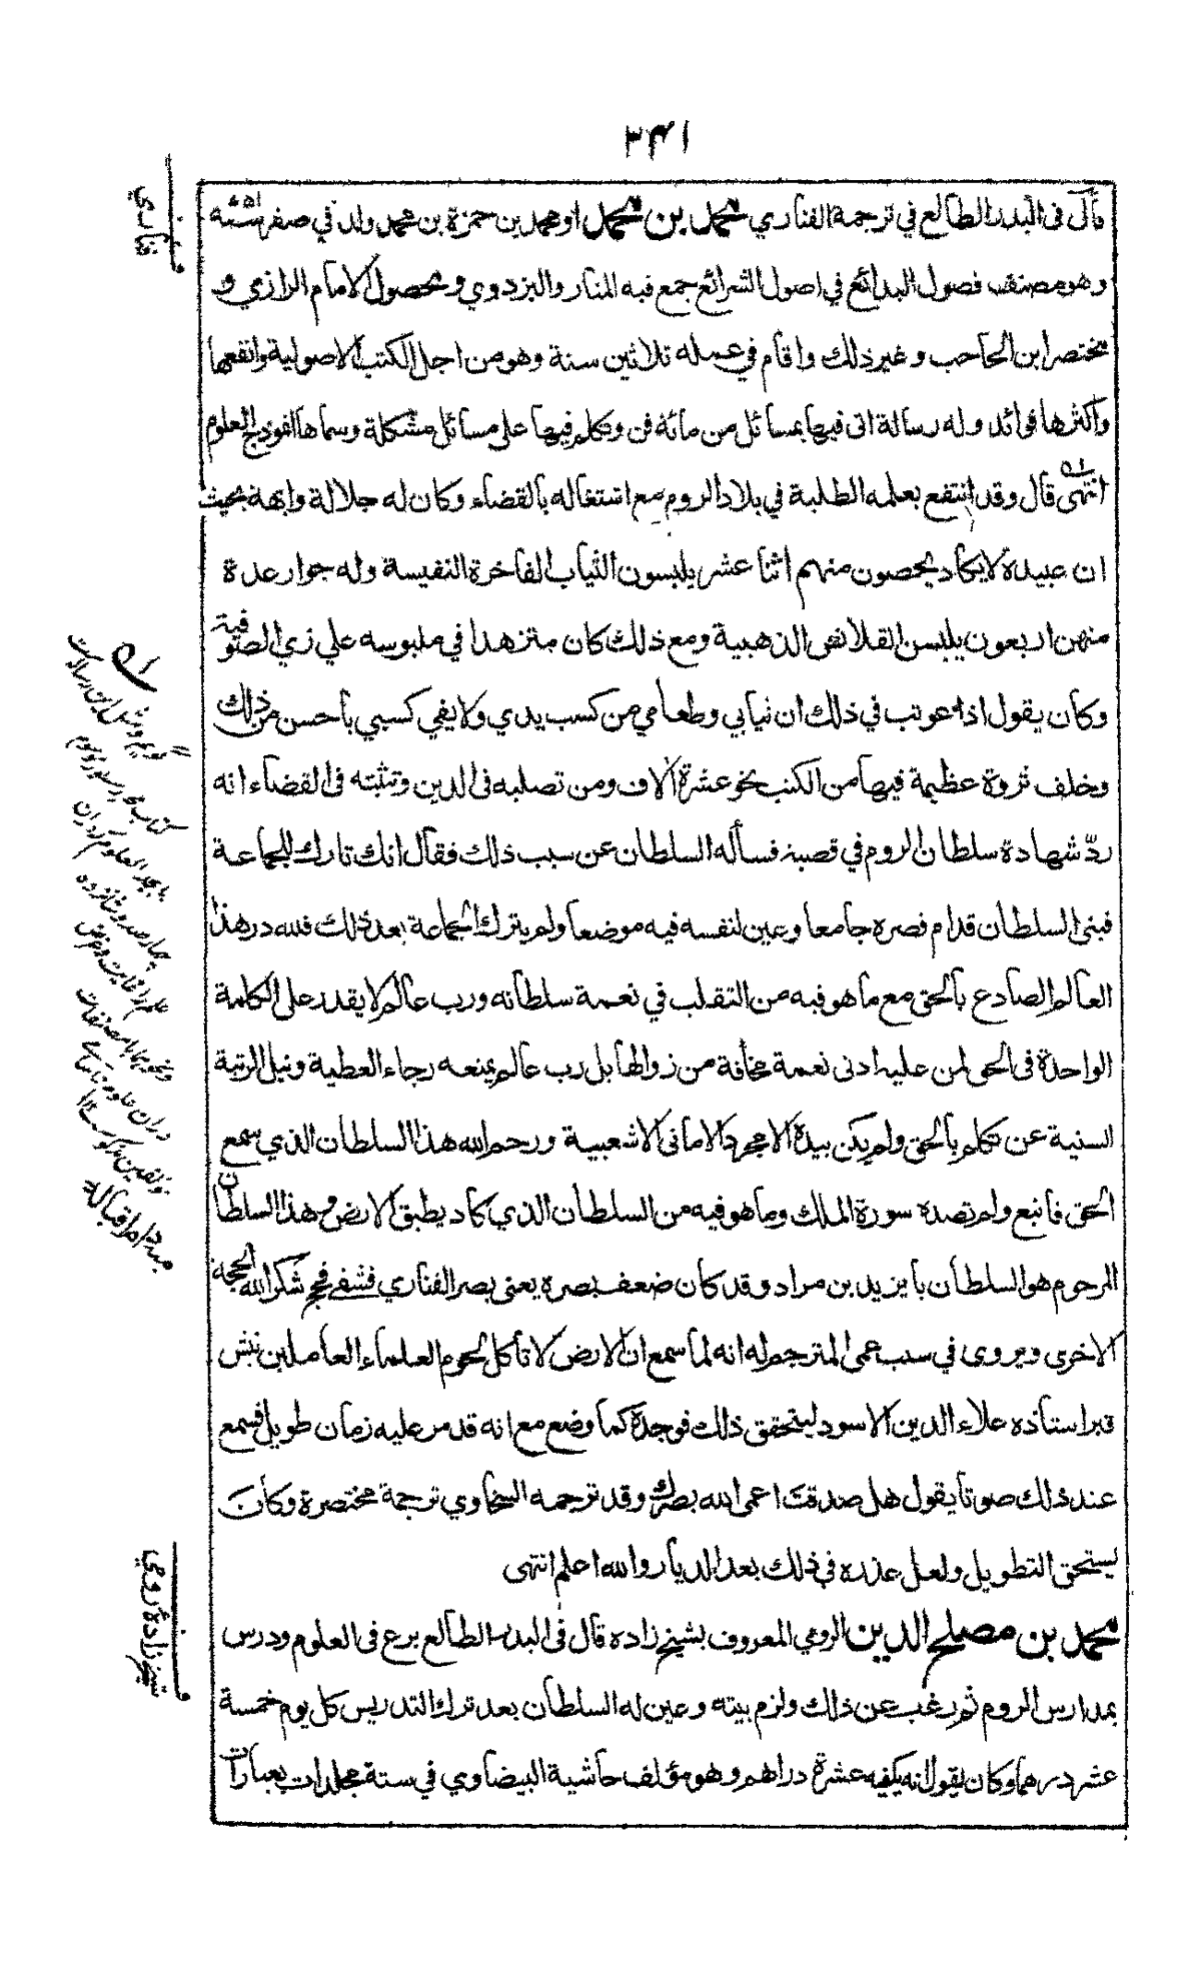 ٣٤١
قال فى البدر الطالع في ترجمة الفناري محمد بن محمد او محمد بن حمزة بن محمد ولد في صفر سنة
وهو مصنف فصول البدائع في اصول الشرائع جمع فيه المنار والبزدوي ومحصول الامام الرازي و
مختصر ابن الحاجب وغير ذلك واقام في عمله ثلاثين سنة وهو من اجل الكتب الاصولية وانفعها
واكثرها فوائد وله رسالة اتى فيها بمسائل من مائة فن وتكلم فيها على مسائل مشكلة وسماها انموذج العلوم
انتهى قال وقد انتفع بعلمه الطلبة في بلاد الروم مع اشتغاله بالقضاء وكان له جلالة وابهة بحيث
ان عبيدة لا يكاد يحصون منهم اثنا عشر يلبسون الثياب الفاخرة النفيسة وله جوار عدة
منهن اربعون يلبسن القلانس الذهبية ومع ذلك كان متزهدا في ملبوسه علي زي الصوفية
وكان يقول اذا عوتب في ذلك ان ثيابي وطعامي من كسب يدي ولا يفي كسبي بأحسن من ذلك
وخلف ثروة عظيمة فيها من الكتب نحو عشرة الاف ومن تصلبه فى الدين وتثبته فى القضاء انه
ردّ شهادة سلطان الروم في قصية فسأله السلطان عن سبب ذلك فقال انك تارك للجماعة
فبنى السلطان قدام قصره جامعا وعين لنفسه فيه موضعا ولم يترك الجماعة بعد ذلك فلله در هذا
العالم الصادع بالحق مع ما هو فيه من التقلب في نعمة سلطانه ورب عالم لا يقدر على الكلمة
الواحدة فى الحق لمن عليه ادنى نعمة مخافة من زوالها بل رب عالم يمنعه رجاء العطية ونيل الرتبة
السنية عن تكلم بالحق ولم يكن بيدة الا مجرد الامانى الاشعبية ورحم الله هذا السلطان الذي سمع
الحق فاتبع ولم تصده سورة الملك وما هو فيه من السلطان الذي كاد يطبق الارض وهذا السلطان
المرحوم هو السلطان بايزيد بن مراد وقد كان ضعف بصره يعنى بصر الفناري فشفے فحج شكرا لله الحجة
الاخرى ويروى في سبب عمى المترجم له انه لما سمع ان الارض لا تأكل لحوم العلماء العاملين نبش
قبر استاذه علاء الدين الاسود ليتحقق ذلك فوجدة كما وضع مع انه قد مر عليه زمان طويل فسمع
عند ذلك صوتا يقول هل صدقت اعمى الله بصرك وقد ترجمه السخاوي ترجمة مختصرة وكان
يستحق التطويل ولعل عذره في ذلك بعد الديار والله اعلم انتهى
محمد بن مصلح الدين الرومي المعروف بشيخ زاده قال فى البدر الطالع برع فى العلوم ودرس
بمدارس الروم ثم رغب عن ذلك ولزم بيته وعين له السلطان بعد ترك التدريس كل يوم خمسة
عشر درهما وكان يقول انه يكفيه عشرة دراهم وهو مؤلف حاشية البيضاوي في ستة مجلدات بعبارات
فناري
شيخ زادهٔ رومي